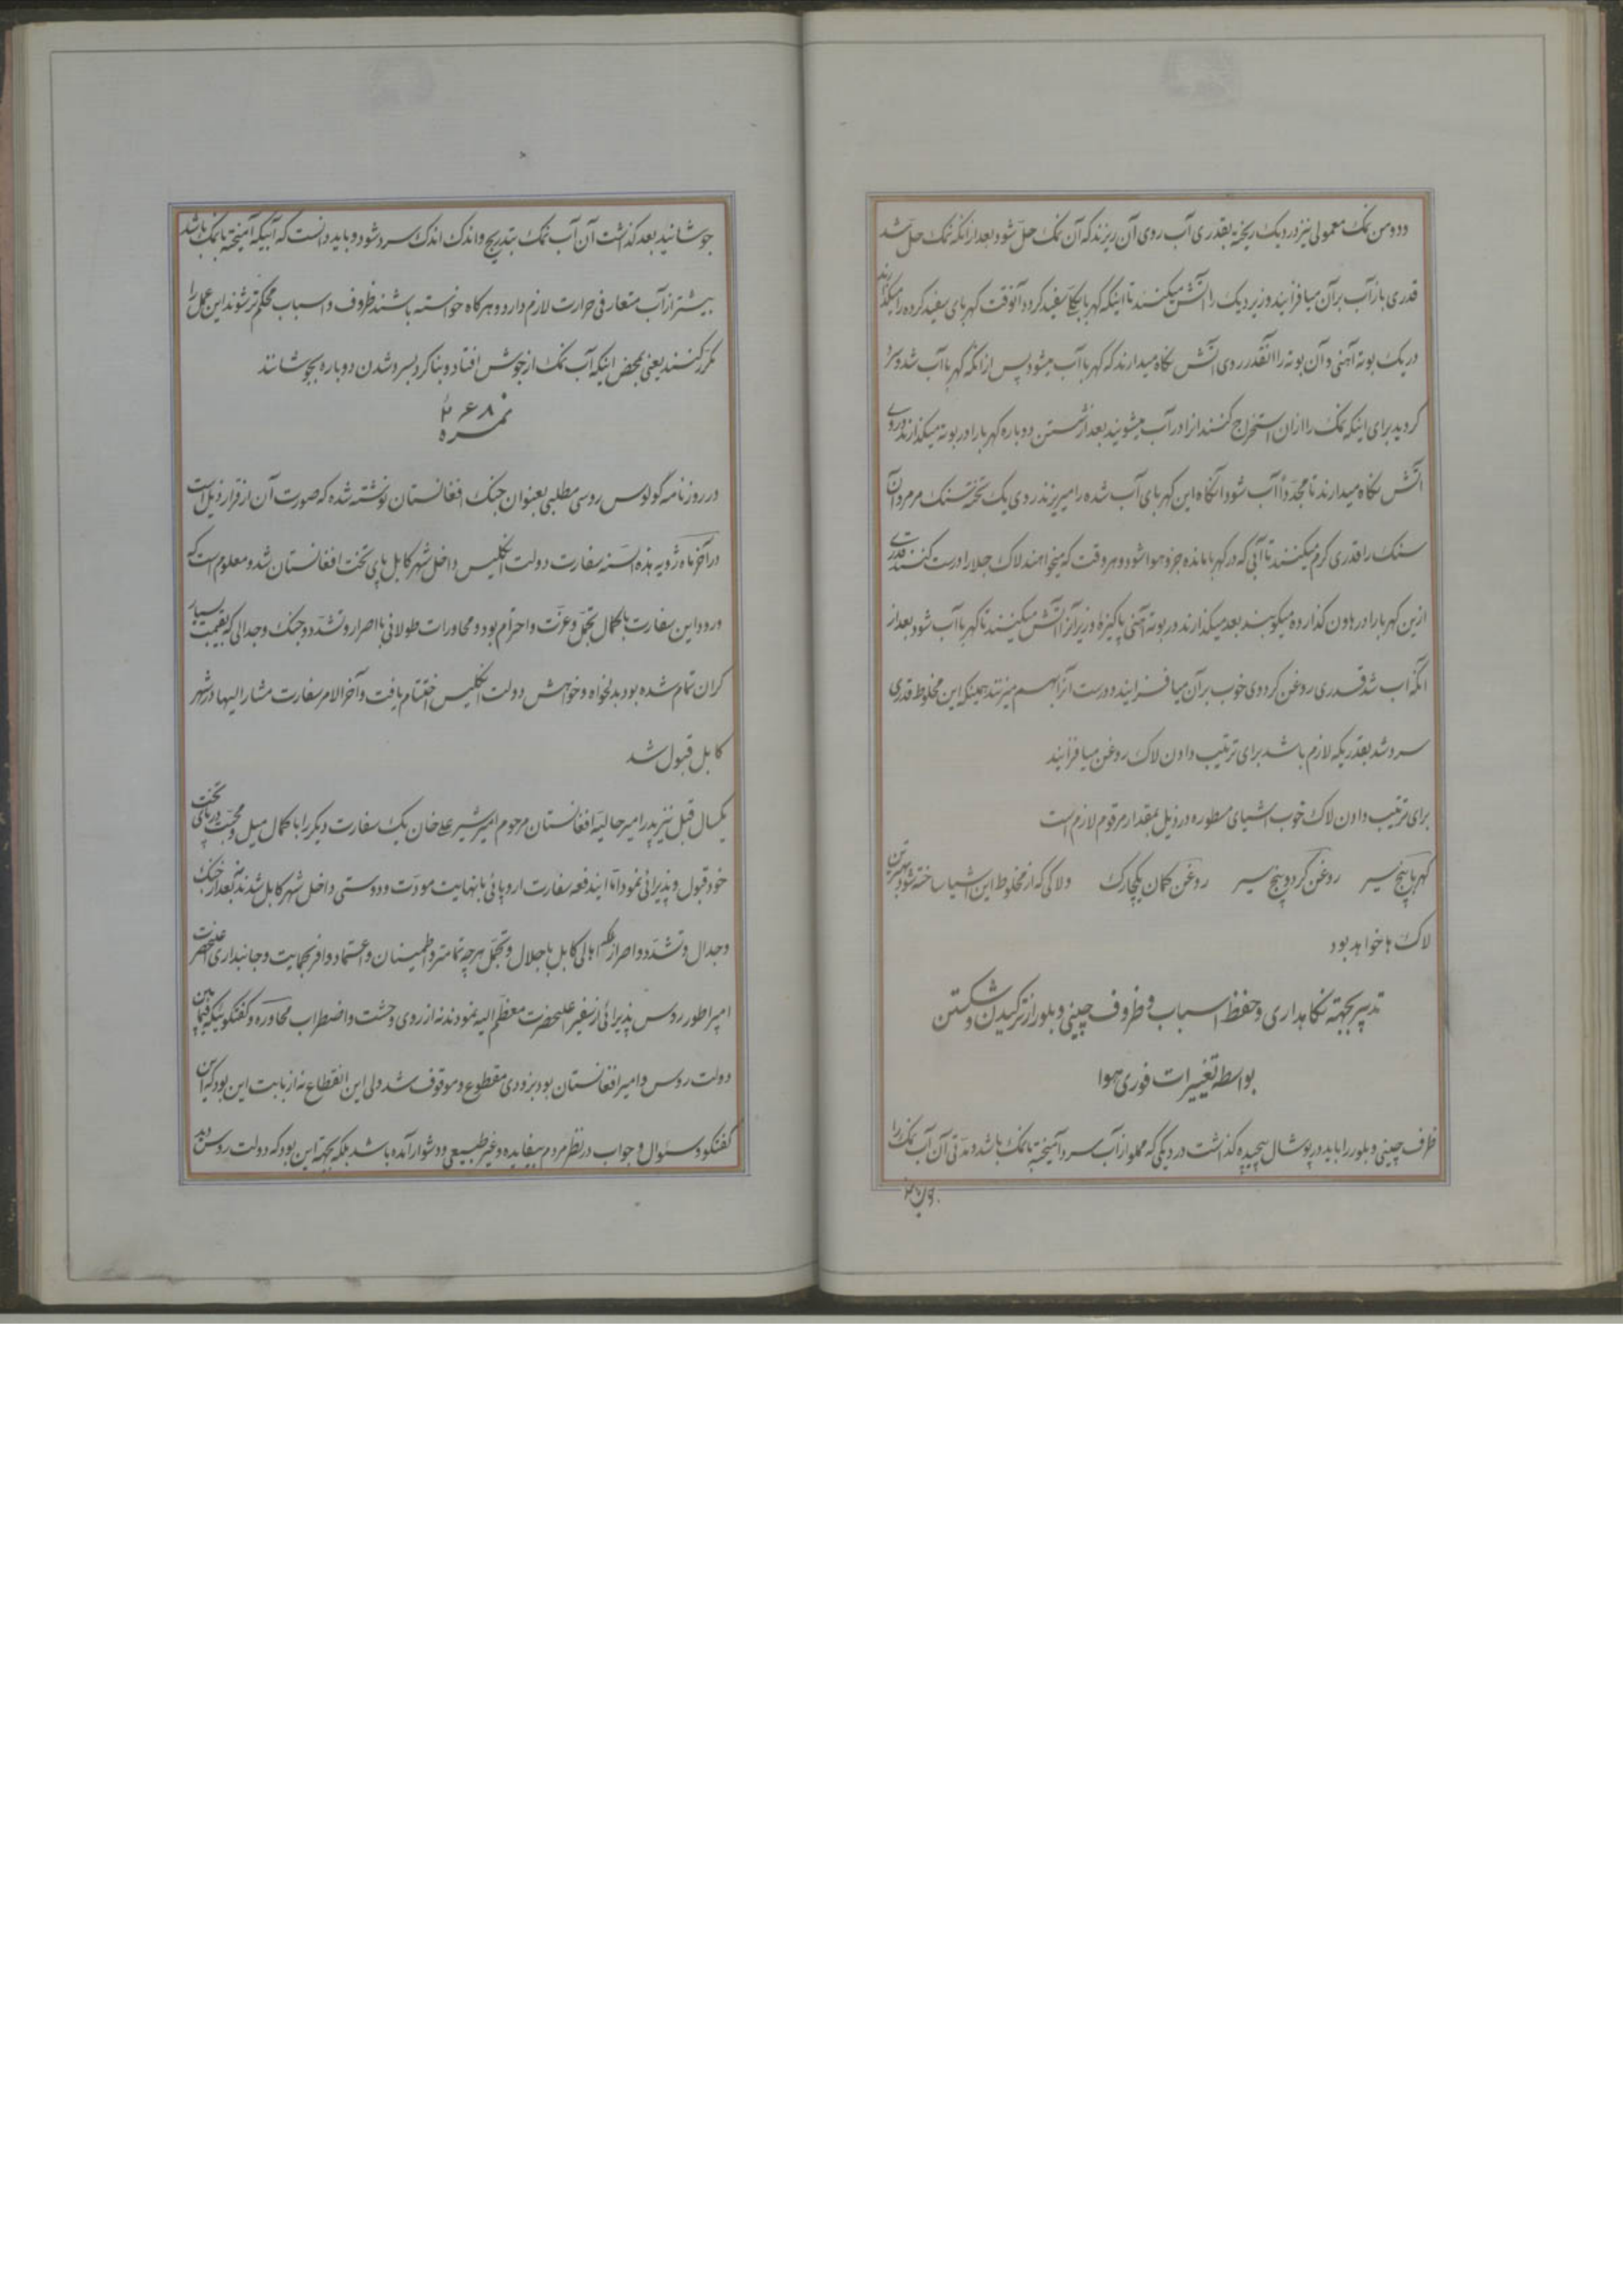 دو من نمک معمولی نیز در دیک ریخته بقدری آب روی آن ریزند که آن نمک حل شود بعد از انکه نمک حل شد
قدری باز آب بر آن میافزایند و زیر دیک را آتش میکنند تا اینکه کهربا بکلی سفید کردد آنوقت کهربای سفید کرده را میکذارند
در یک بوته آهنی و آن بوته را آنقدر روی آتش نکاه میدارند که کهربا آب میشود پس از انکه کهربا آب شد و سرد
کردید برای اینکه نمک را از ان استخراج کنند انرا در آب میشویند بعد از شستن دوباره کهربا را در بوته میکذارند و روی
آتش نکاه میدارند تا مجدداً آب شود و آنکاه این کهربای آب شده را میریزند روی یک تخته سنک مرمر و آن
سنک را قدری کرم میکنند تا آبی که در کهربا مانده جزو هوا شود و هر وقت که میخواهند لاک جلا را درست کنند قدری
ازین کهربا را در هاون کذارده میکوبند بعد میکذارند در بوته آهنی پاکیزه و زیر آنرا آتش میکنند تا کهربا آب شود بعد از
انکه آب شد قدری روغن کردوی خوب بر آن میافزایند و درست انرا بهم میزنند همینکه این مخلوط قدری
سرد شد بقدریکه لازم باشد برای ترتیب دادن لاک روغن میافزایند
برای ترتیب دادن لاک خوب اشیای مسطوره در ذیل بمقدار مرقوم لازم است
کهربا پنج سیر روغن کردو پنج سیر روغن کمان یکچارک و لاکی که از مخلوط این اشیا ساخته شود بهترین
لاک ها خواهد بود
تدبیر بجهته نکاهداری و حفظ اسباب و ظروف چینی و بلور از ترکیدن و شکستن
بواسطه تغییرات فوری هوا
ظرف چینی و بلور را باید در پوشال پیچیده کذاشت در دیکی که مملو از آب سرد آمیخته با نمک باشد و مدتی آن آب نمک را
جوشانید بعد کذاشت آن آب نمک بتدریج و اندک اندک سرد شود و باید دانست که آبیکه آمیخته با نمک باشد
بیشتر از آب متعارفی حرارت لازم دارد و هر کاه خواسته باشند ظروف و اسباب محکم تر شوند این عمل را
مکرر کنند یعنی بمحض اینکه آب نمک از جوش افتاد و بنا کرد بسرد شدن دوباره بجوشانند
نمره ۲۶۸
در روزنامه گولوس روسی مطلبی بعنوان جنک افغانستان نوشته شده که صورت آن از قرار ذیل است
در آخر ماه ژویه هذه السنه سفارت دولت انکلیس داخل شهر کابل پای تخت افغانستان شد و معلوم است که
ورود این سفارت با کمال تجمل و عزت و احترام بود و محاورات طولانی با اصرار و تشدد و جنک و جدالی که بقیمت بسیار
کران تمام شده بود بدلخواه و خواهش دولت انکلیس اختتام یافت و آخر الامر سفارت مشار الیها در شهر
کابل قبول شد
یکسال قبل نیز پدر امیر حالیه افغانستان مرحوم امیر شیر علی خان یک سفارت دیکر را با کمال میل و محبت در پای تخت
خود قبول و پذیرائی نمود اما ایندفعه سفارت اروپائی با نهایت مودت و دوستی داخل شهر کابل شدند نه بعد از جنک
و جدال و تشدد و اصرار اهالی کابل با جلال و تجمل هر چه تمامتر و اطمینان و اعتماد وافر بحمایت و جانبداری اعلیحضرت
امپراطور روس پذیرائی از سفیر اعلیحضرت معظم الیه نمودند نه از روی وحشت و اضطراب محاوره و کفتکوئیکه فیمابین
دولت روس و امیر افغانستان بود بزودی مقطوع و موقوف شد ولی این انقطاع نه از بابت این بود که این
کفتکو و سئوال و جواب در نظر مردم بیفایده و غیر طبیعی و دشوار آمده باشد بلکه بجهته این بود که دولت روس دید